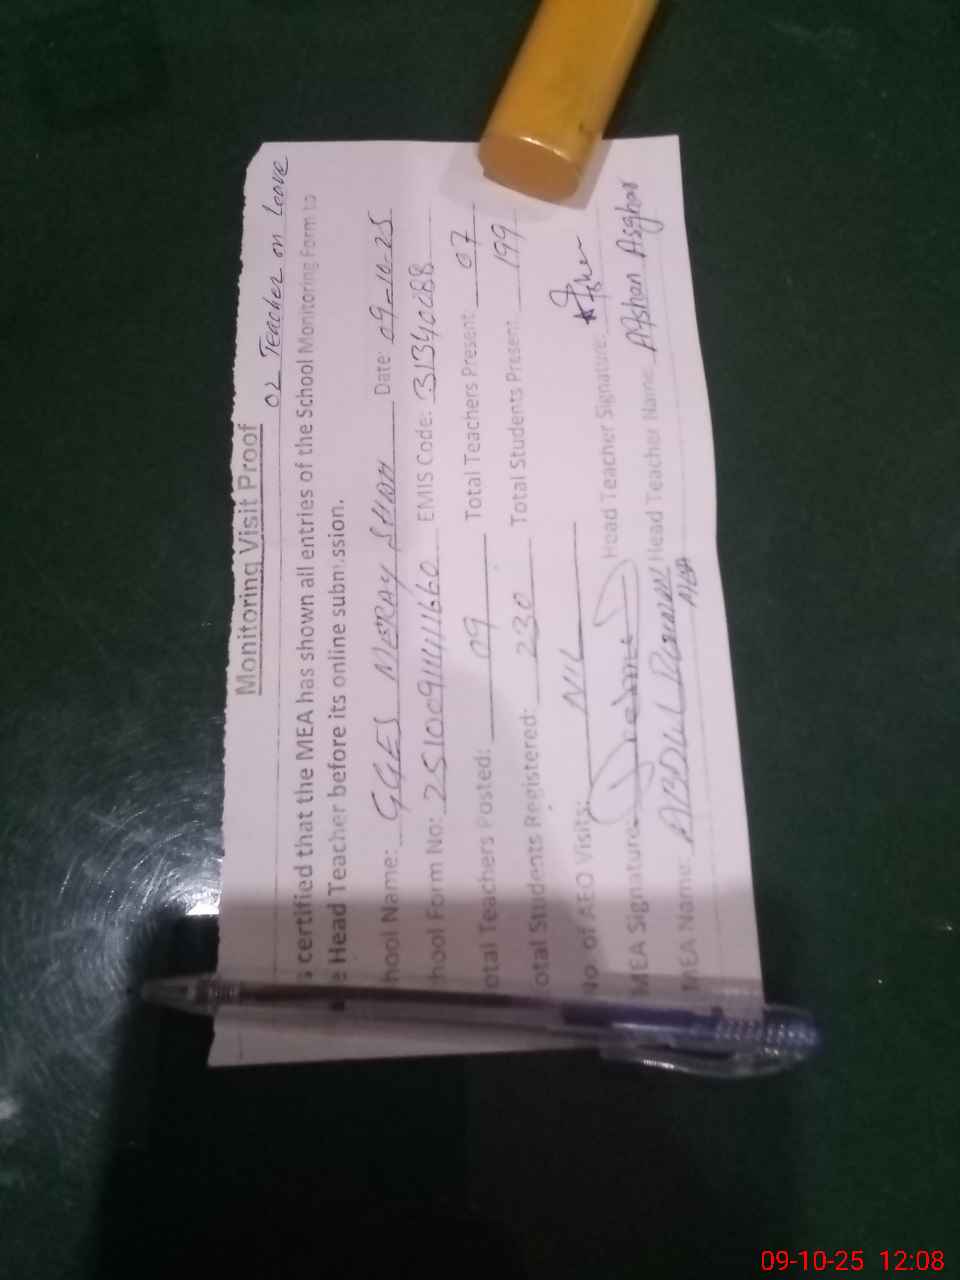 Monitoring Visit Proof
02 Teacher on Leave
s certified that the MEA has shown all entries of the School Monitoring Form to
e Head Teacher before its online submission.
hool Name: GGES MERAY SHAH Date: 09-10-25
hool Form No: EMIS Code: 31340088
otal Teachers Posted: 09 Total Teachers Present: 07
otal Students Registered: 230 Total Students Present: 199
No. of AEO Visits: NIL
MEA Signature: Head Teacher Signature:
MEA Name: ABDUL Head Teacher Name: Afshan Asghar
MEA
09-10-25 12:08